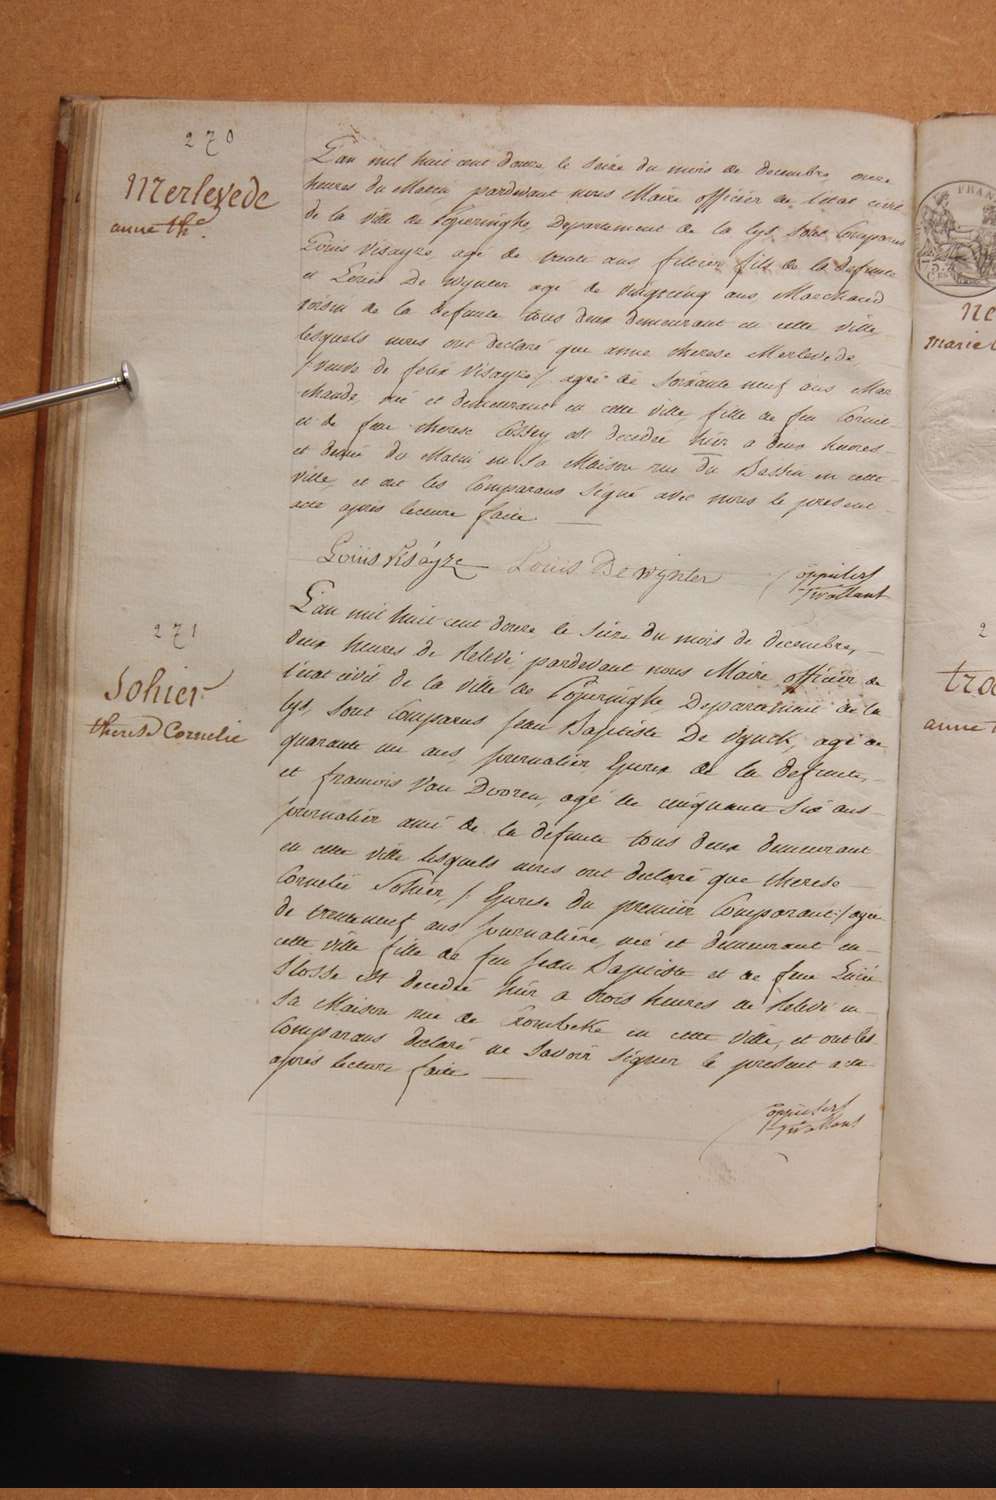 270
Merlevede
anne thé.
L'an mil huit cent douze le seize du mois de decembre, onze
heures du Matin, pardevant nous Maire officier de l'etat civil
de la ville de Poperinghe, Departement de la lys, sont Comparus
Louis Visayze, agé de trente ans, filtier, fils de la defunte
et Louis De wynter agé de vingtcinq ans, Marchand
voisin de la defunte tous deux demeurant en cette ville,
lesquels nous ont declaré que anne therese Merlevede,
/ veuve de felix Visayze / agée de soixante neuf ans, Mar
chande, née et demeurant en cette ville, fille de feu Corneil
et de feue therese Cossey est decedée hier a deux heures
et demie du Matin en sa Maison rue du Bassin en cette
ville, et ont les Comparans signé avec nous le present
acte après lecture faite
Louis Visayze Louis De wynter
271
Sohier
therese Cornelie
L'an mil huit cent douze le seize du mois de decembre,
deux heures de relevé, pardevant nous Maire officier de
l'etat civil de la ville de Poperinghe, Departement de la
lys, sont Comparus Jean Baptiste De Vynck, agé de
quarante un ans, journalier, Epoux de la defunte,
et francois Van Dooren, agé de cinquante six ans
journalier ami de la defunte tous deux demeurant
en cette ville lesquels nous ont declaré que therese
Cornelie Sohier, / Epouse du premier Comparant / agée
de trenteneuf ans journaliere, née et demeurant en
cette ville fille de feu Jean Baptiste et de feue
Slosse est decedée hier a trois heures de relevé en
sa Maison rue de Crombeke en cette ville, et ont les
Comparans declaré ne savoir signer le present acte
après lecture faite
FRAN
marie
anne